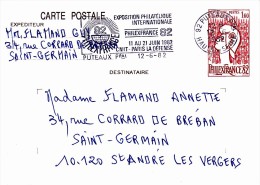 CARTE POSTALE
EXPEDITEUR
MR. FLAMAND GUY
34, rue CORRARD DE BREBAN
SAINT-GERMAIN
EXPOSITION PHILATELIQUE
INTERNATIONALE
PHILEXFRANCE 82
11 AU 21 JUIN 1982
CNIT-PARIS LA DEFENSE
82
PHILEXFRANCE
PUTEAUX PAL 12-6-82
92 PUTEAUX
1,60
PHILEXFRANCE 82
DESTINATAIRE
Madame FLAMAND ANNETTE
34, rue CORRARD DE BREBAN
SAINT-GERMAIN
10.120 ST ANDRE LES VERGERS